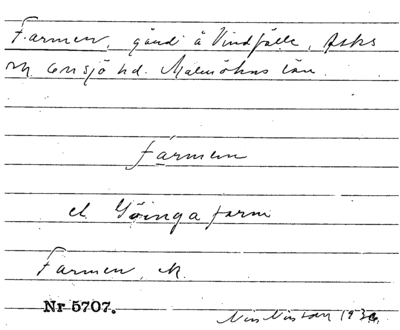 Farmen, gård å Vindfälle, Asks
sn. Onsjö hd. Malmöhus län.
farmen
el. Göingafarm
Farmen, A.
Nr 5707.
Nils Nilsson 1936